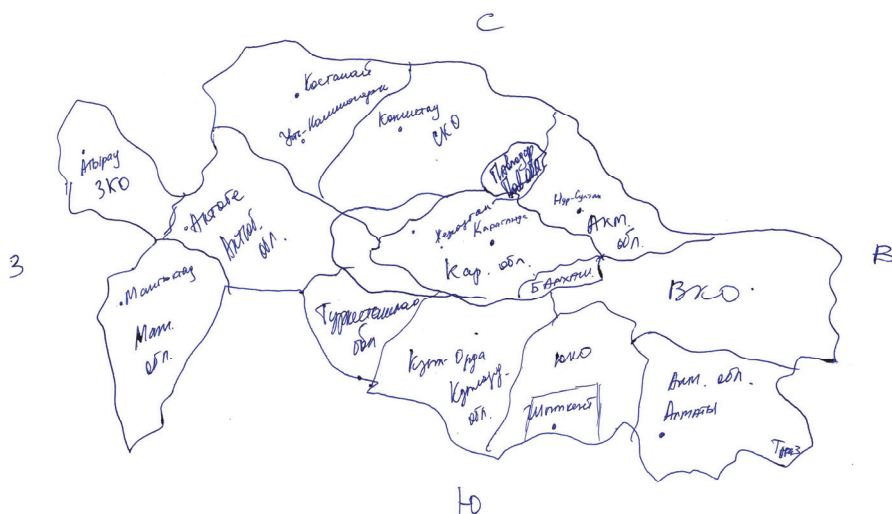 С
Костанай
Усть-Каменогорск
Кокшетау
СКО
Атырау
ЗКО
Павлодар
Пав. обл.
Нур-Султан
Акм.
обл.
Актобе
Актоб.
обл.
Жезказган
Караганда
Кар. обл.
З
В
Балхаш.
ВКО
Мангистау
Ман.
обл.
Туркестанская
обл
Кызыл-Орда
Кызылорд.
обл.
ЮКО
Шымкент
Алм. обл.
Алматы
Тараз
Ю